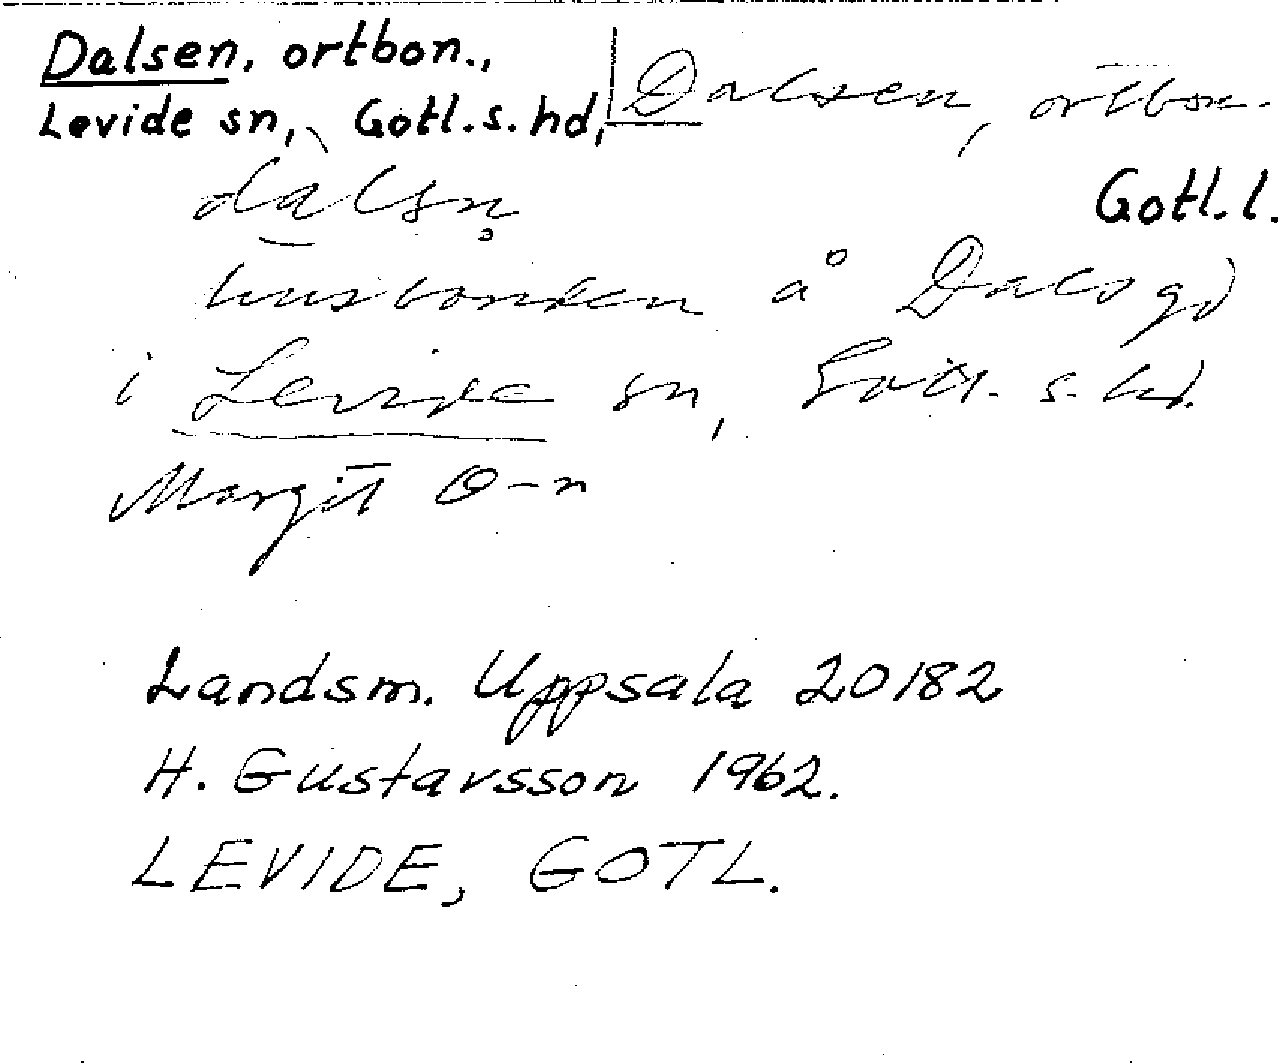 Dalsen, ortbon.,
Levide sn, Gotl. s. hd,
Dalsen, ortbon.
Gotl. l.
dàlsn̥
husbonden å Dals gd
i Levide sn, Gotl. s. hd.
Margit O-n
Landsm. Uppsala 20182
H. Gustavsson 1962.
LEVIDE, GOTL.